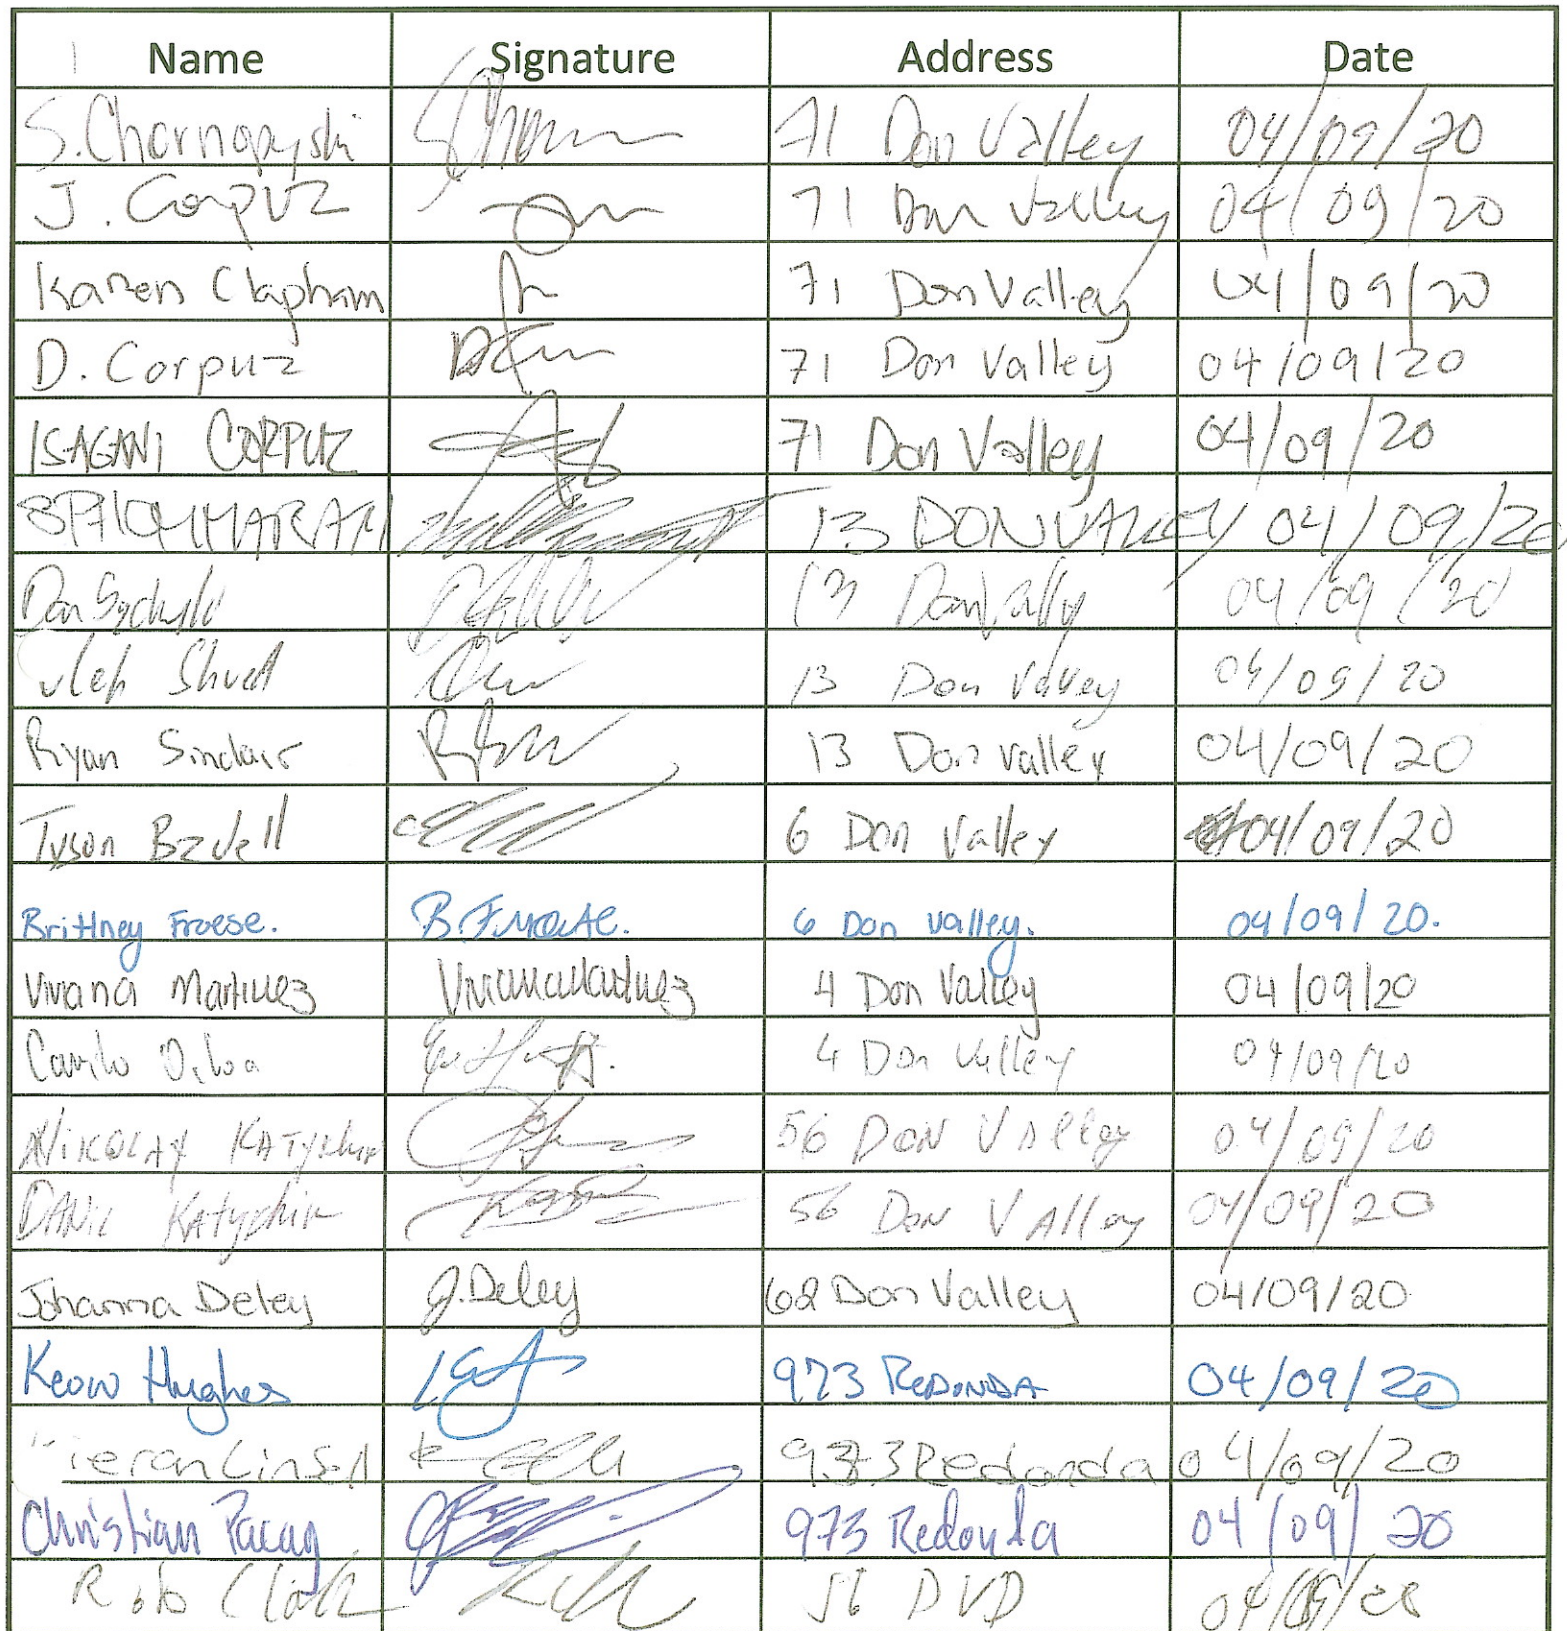 Name Signature Address Date
S. Chornopyski 71 Don Valley 04/09/20
J. Corpuz 71 Don Valley 04/09/20
Karen Clapham 71 Don Valley 04/09/20
D. Corpuz 71 Don Valley 04/09/20
ISAGANI CORPUZ 71 Don Valley 04/09/20
13 DON VALLEY 04/09/20
Dan 13 Don Vally 04/09/20
13 Don Valley 04/09/20
Ryan Sinclair 13 Don Valley 04/09/20
Tyson 6 Don Valley 04/09/20
Brittney Froese. B. Froese. 6 Don Valley. 04/09/20.
Viviana Martinez Viviana Martinez 4 Don Valley 04/09/20
Camilo 4 Don Valley 04/09/20
NIKOLAY KATYCHIN 56 DON VAlley 04/09/20
DANIL KAtychin 56 DON VAlley 04/09/20
Johanna Deley J. Deley 62 Don Valley 04/09/20
Hughes 973 REDONDA 04/09/20
973 Redonda 04/09/20
Christian Pacay 973 Redonda 04/09/20
Rob Clark 56 DVD